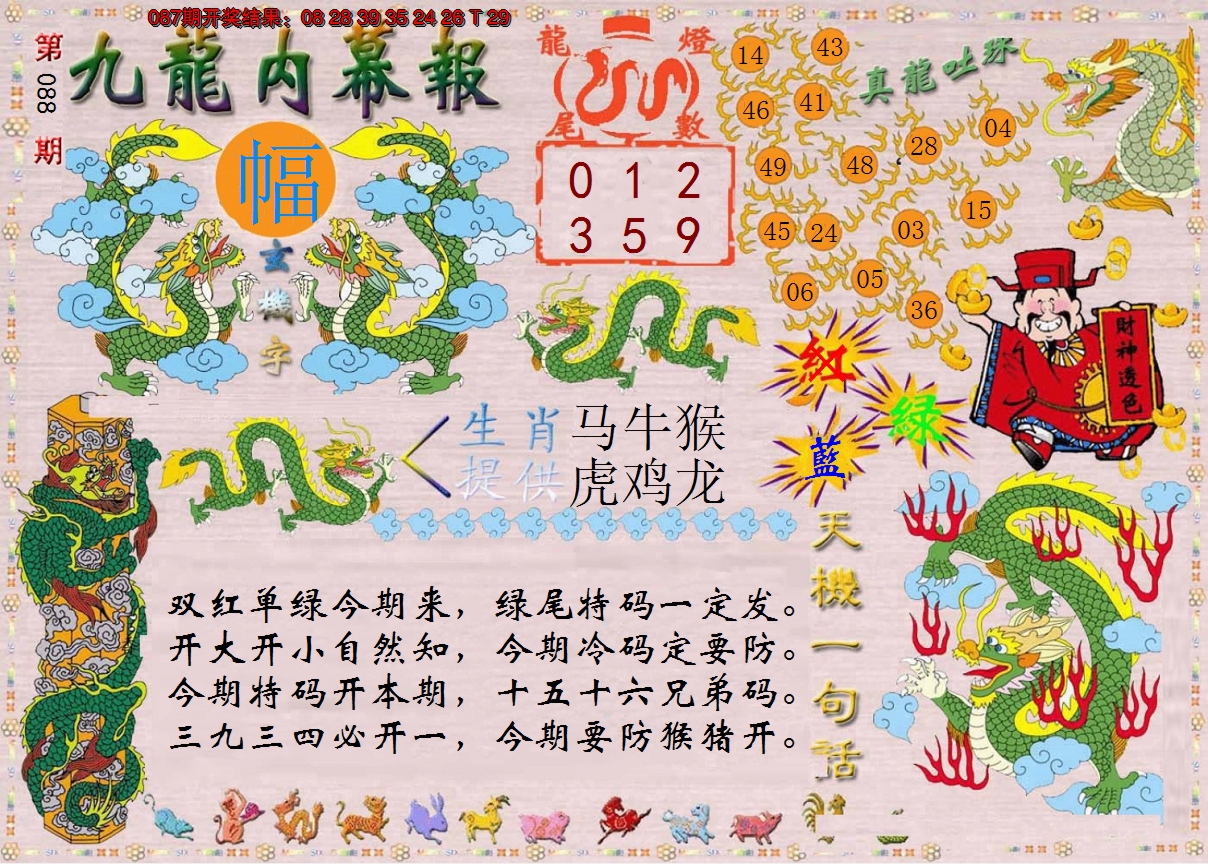 087期开奖结果：08 28 39 35 24 26 T 29
第
088
期
九龍内幕報
幅
玄
機
字
龍 燈
尾 數
0 1 2
3 5 9
真龍吐珠
14
43
46
41
49
48
28
04
45
24
03
15
06
05
36
財神透色
紅
绿
藍
生肖 马牛猴
提供 虎鸡龙
双红单绿今期来，绿尾特码一定发。
开大开小自然知，今期冷码定要防。
今期特码开本期，十五十六兄弟码。
三九三四必开一，今期要防猴猪开。
天
機
一
句
話